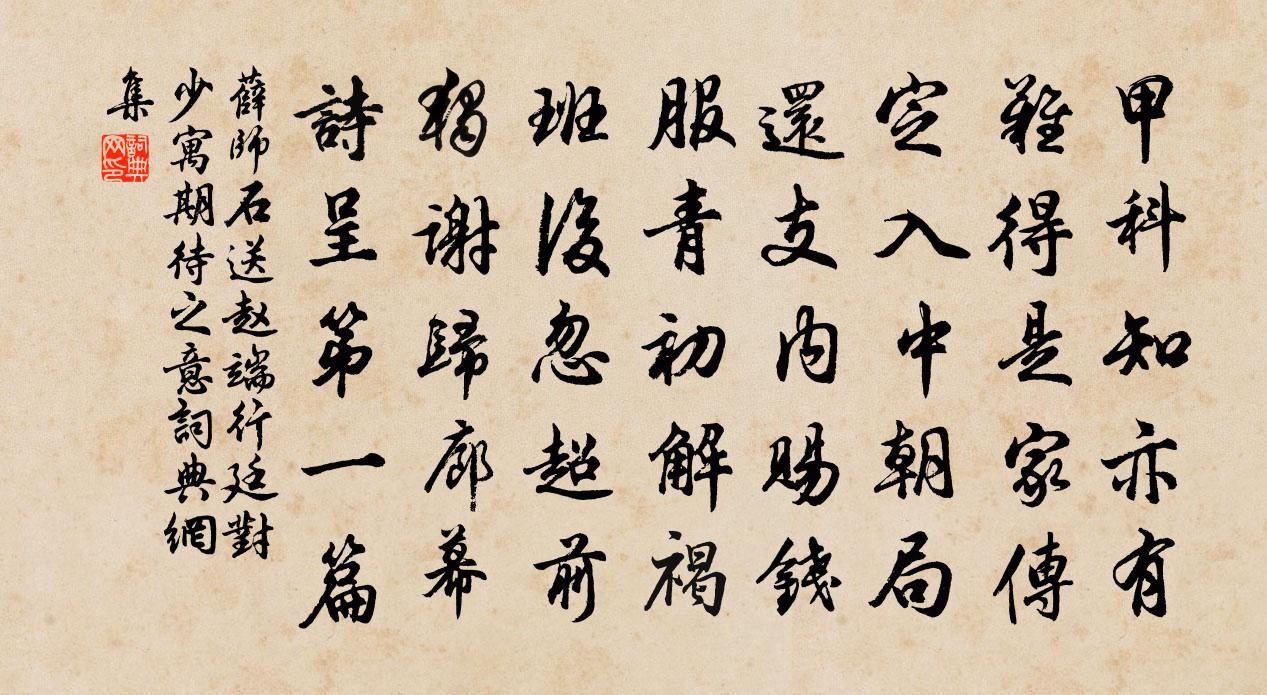 甲科知亦有
難得是家傳
定入中朝局
還支内賜錢
服青初解褐
班後忽超前
獨謝歸廊幕
詩呈第一篇
薛師石送赵端行廷對
少寓期待之意詞典網
集
詞典
网印